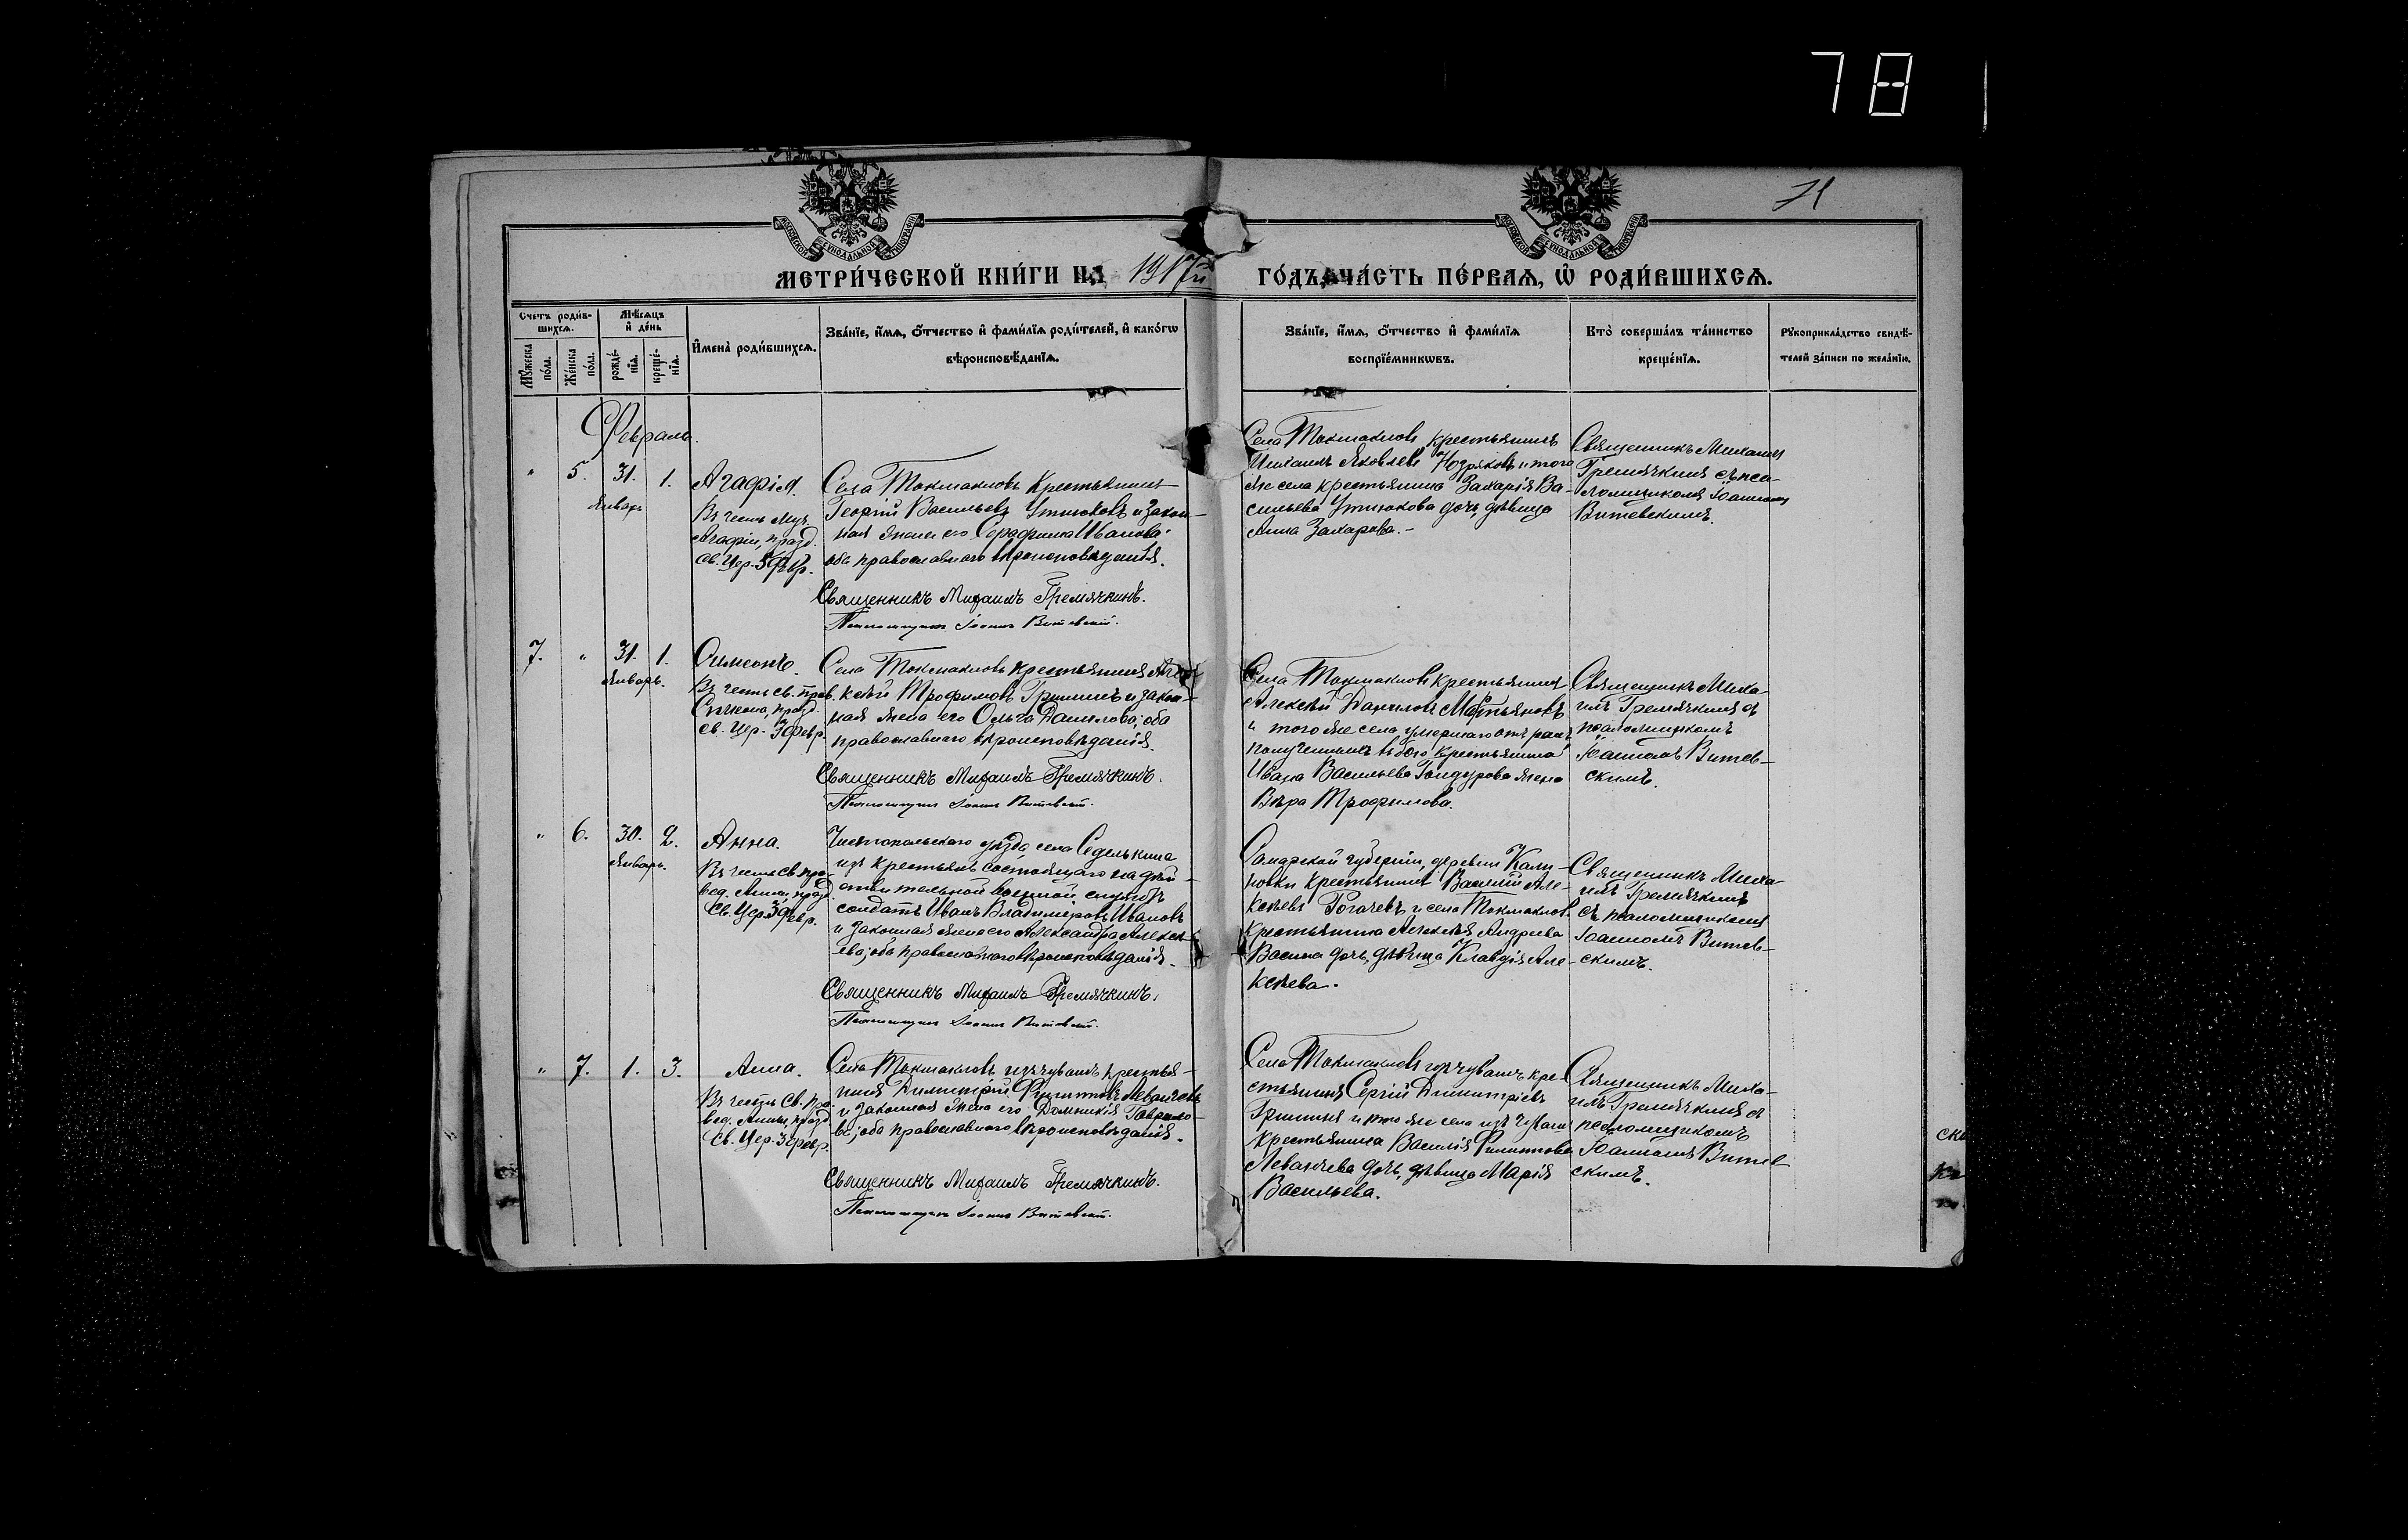 78
71
МЕТРИ́ЧЕСКОЙ КНИ́ГИ НА 1917й ГО́ДЪ, ЧА́СТЬ ПЕ́РВАЯ, Ѡ҆ РОДИ́ВШИХСЯ.
Счетъ роди́в-
шихся.
Му́жеска
по́ла.
Же́нска
по́ла.
Мѣ́сяцъ
и҆ де́нь
рожде́-
нїѧ.
креще́-
нїѧ.
И҆мена̀ роди́вшихся.
Зва́нїе, и҆́мѧ, ѻ҆́тчество и҆ фами́лїѧ роди́телей, и҆ како́гѡ
вѣроисповѣ́данїѧ.
Зва́нїе, и҆́мѧ, ѻ҆́тчество и҆ фами́лїѧ
воспрїе́мникѡвъ.
Кто̀ соверша́лъ та́инство
креще́нїѧ.
Рꙋкоприкла́дство свидѣ́-
телей за́писи по жела́нїю.
Февраль.
" 5. 31. 1.
Январь
Агафія.
Въ честь муч.
Агафіи, празд.
Св. Цер. 5 Февр.
Села Токмакловъ крестьянинъ
Георгій Васильевъ Утюковъ и закон-
ная жена его Серафима Иванова
оба православнаго вѣроисповѣданія.
Священникъ Михаилъ Гремячкинъ.
Псаломщикъ Іоаннъ Витевскій.
Села Токмакловъ крестьянинъ
Михаилъ Яковлевъ Ноздряковъ и того
же села крестьянина Захарія Ва-
сильева Утюкова дочь, дѣвица
Анна Захарова.-
Священникъ Михаилъ
Гремячкинъ съ пса-
ломщикомъ Іоанномъ
Витевскимъ.
7. " 31. 1.
Январь.
Симеонъ.
Въ честь св. прав.
Симеона, празд.
св. Цер. 3 Февр.
Села Токмакловъ крестьянинъ Але-
ксѣй Трофимовъ Гришинъ и закон-
ная жена его Ольга Данилова; оба
православнаго вѣроисповѣданія.
Священникъ Михаилъ Гремячкинъ.
Псаломщикъ Іоаннъ Витевскій.
Села Токмакловъ крестьянинъ
Алексѣй Даниловъ Мартьяновъ
и того же села умершаго отъ ранъ
полученныхъ въ бою крестьянина
Ивана Васильева жена
Вѣра Трофимова.
Священникъ Миха-
илъ Гремячкинъ съ
псаломщикомъ
Іоанномъ Витев-
скимъ.
" 6. 30. 2.
Январь.
Анна.
Въ честь св. пра-
вед. Анны, празд.
Св. Цер. 3 Февр.
Чистопольскаго уѣзда села Седелькина
изъ крестьянъ состоящаго на дѣй-
ствительной военной службѣ
солдатъ Иванъ Владимировъ Ивановъ
и законная жена его Александра Алексѣ-
ева; оба православнаго вѣроисповѣданія.
Священникъ Михаилъ Гремячкинъ.
Псаломщикъ Іоаннъ Витевскій.
Самарской губерніи, деревни Кали-
новки крестьянинъ Василій Але-
ксѣевъ Рогачевъ и села Токмакловъ
крестьянина Алексѣя Андреева
Васина дочь, дѣвица Клавдія Але-
ксѣева.
Священникъ Миха-
илъ Гремячкинъ
съ псаломщикомъ
Іоанномъ Витев-
скимъ.
" 7. 1. 3.
Анна.
Въ честь св. пра-
вед. Анны, празд.
Св. Цер. 3 Февр.
Села Токмакловъ изъ чувашъ крестья-
нинъ Димитрій Филипповъ Леванчевъ
и законная жена его Домникія Гаврило-
ва; оба православнаго вѣроисповѣданія.
Священникъ Михаилъ Гремячкинъ.
Псаломщикъ Іоаннъ Витевскій.
Села Токмакловъ изъ чувашъ кре-
стьянинъ Сергій Димитріевъ
Гришинъ и того же села изъ чувашъ
крестьянина Василія Филиппова
Леванчева дочь, дѣвица Марія
Васильева.
Священникъ Миха-
илъ Гремячкинъ съ
псаломщикомъ
Іоанномъ Витев-
скимъ.